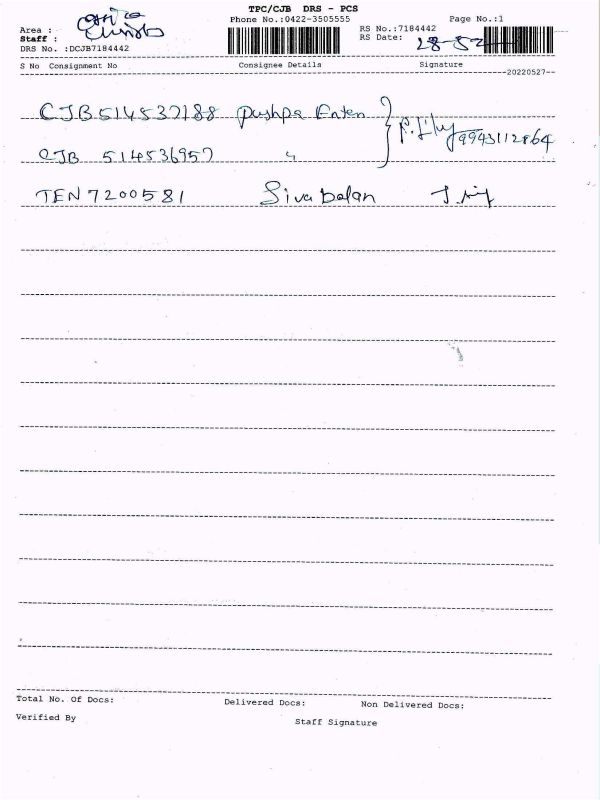 TPC/CJB DRS - PCS
Phone No.:0422-3505555 Page No.:1
Area :
RS No.:7184442
Staff :
RS Date:
DRS No. :DCJB7184442
S No Consignment No Consignee Details Signature
--20220527--
CJB514537188 pushpa Enten
CJB 514536957 "
TEN7200581 Sivabalan
Total No. Of Docs: Delivered Docs: Non Delivered Docs:
Verified By
Staff Signature